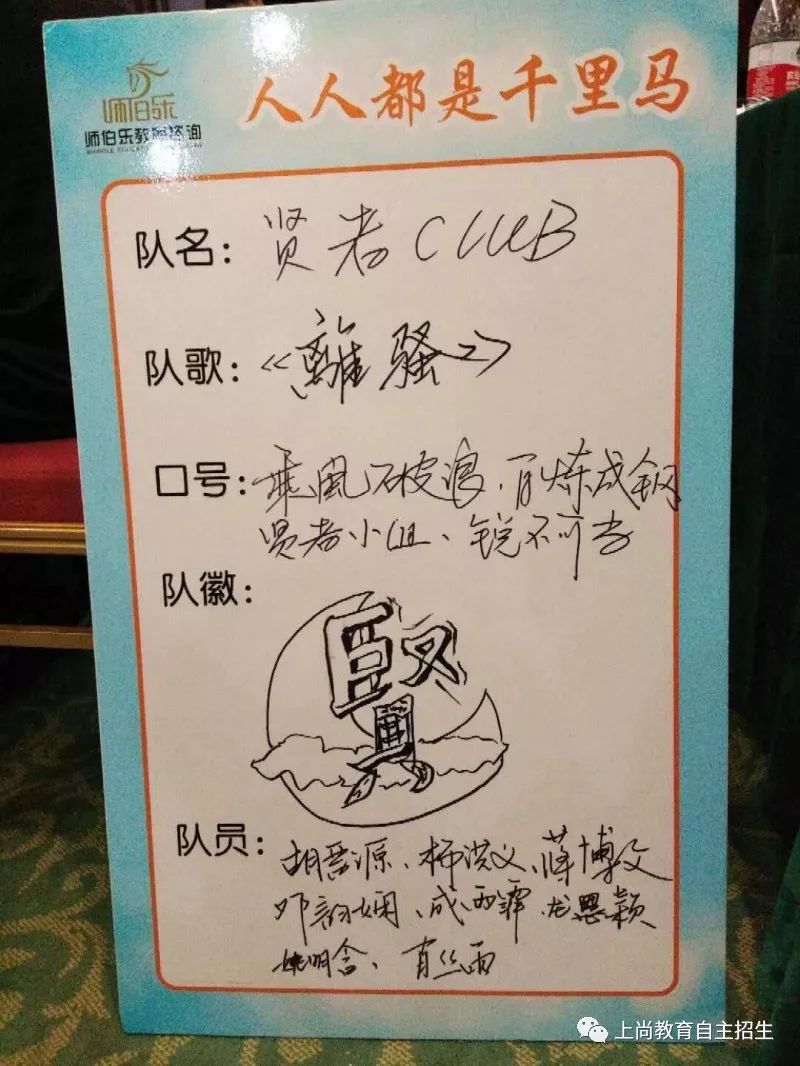 师伯乐
师伯乐教育咨询
人人都是千里马
队名：贤者CLUB
队歌：《離骚》
口号：乘風破浪、百炼成钢
贤者小组、锐不可当
队徽：
賢
队员：胡晋源、杨滨义、蒋博文
邓韵娴、成雨霏、龙思颖
姚明含、肖丝雨
上尚教育自主招生